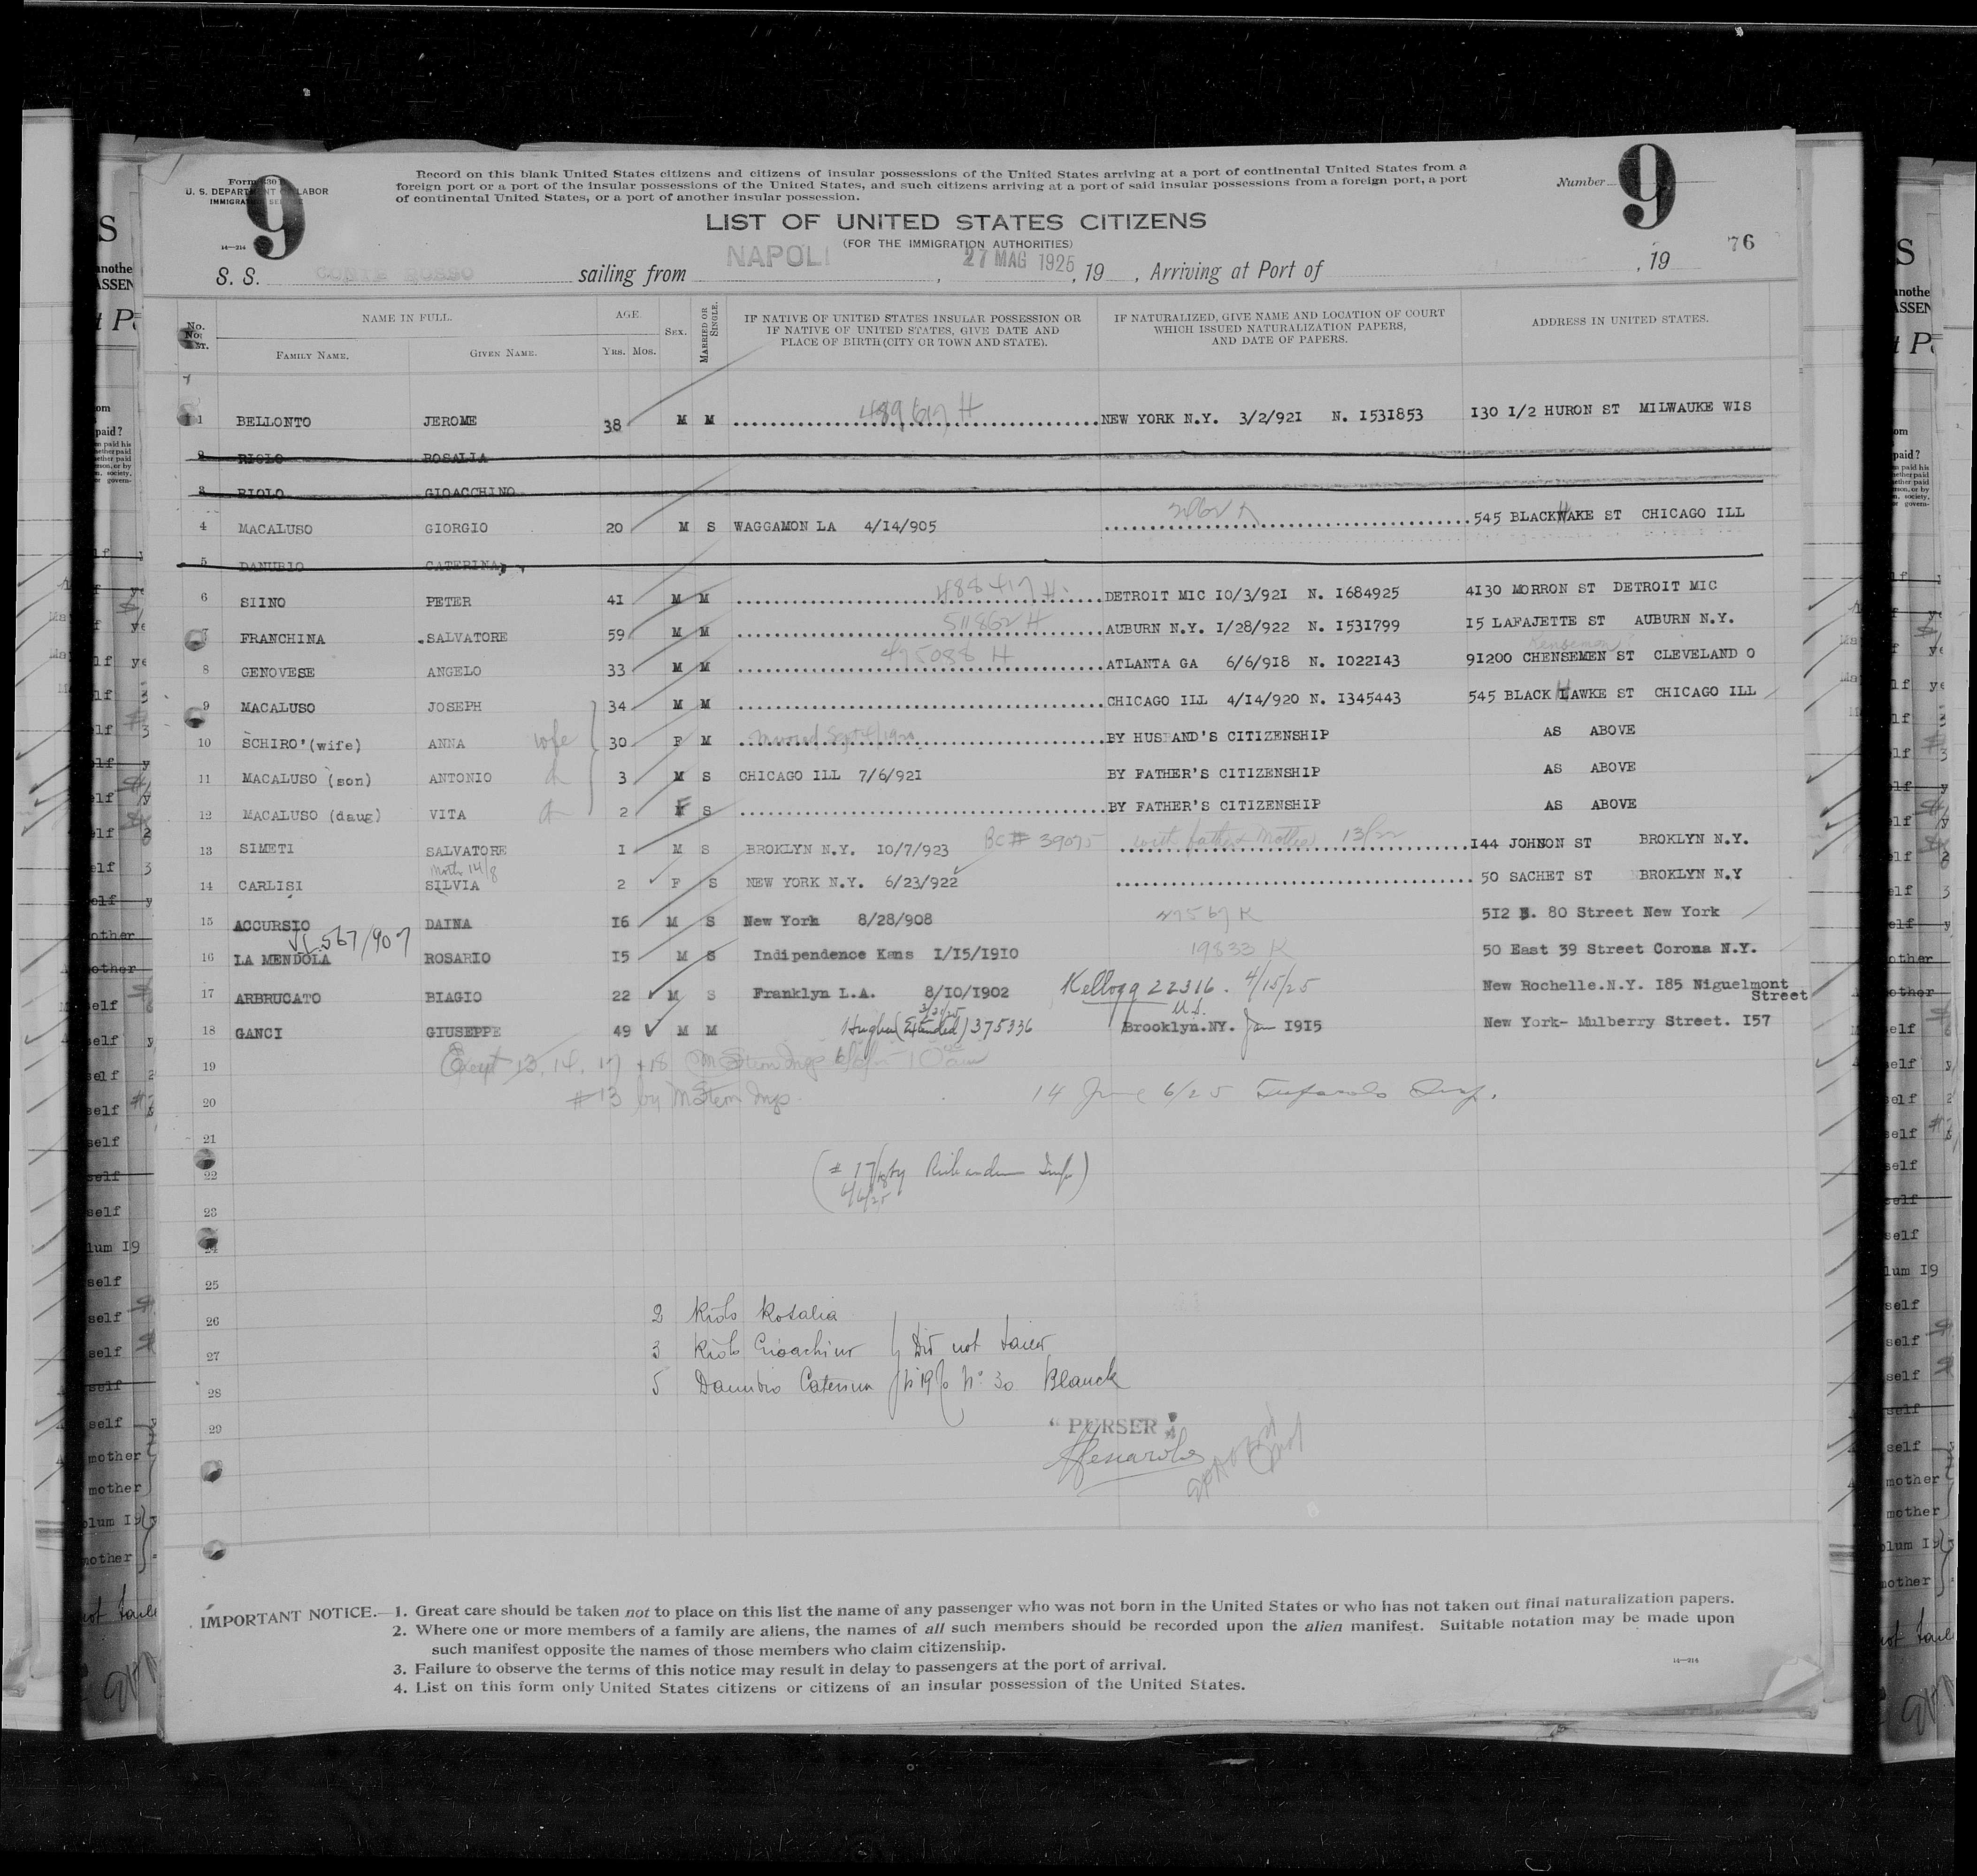 Form 630
U. S. DEPARTMENT OF LABOR
IMMIGRATION SERVICE
9
Record on this blank United States citizens and citizens of insular possessions of the United States arriving at a port of continental United States from a
foreign port or a port of the insular possessions of the United States, and such citizens arriving at a port of said insular possessions from a foreign port, a port
of continental United States, or a port of another insular possession.
Number 9
LIST OF UNITED STATES CITIZENS
(FOR THE IMMIGRATION AUTHORITIES)
14—214
76
S. S. CONTE ROSSO sailing from NAPOLI , 27 MAG 1925 , 19 , Arriving at Port of , 19
No. NAME IN FULL. AGE. SEX. MARRIED OR SINGLE. IF NATIVE OF UNITED STATES INSULAR POSSESSION OR IF NATIVE OF UNITED STATES, GIVE DATE AND PLACE OF BIRTH (CITY OR TOWN AND STATE). IF NATURALIZED, GIVE NAME AND LOCATION OF COURT WHICH ISSUED NATURALIZATION PAPERS, AND DATE OF PAPERS. ADDRESS IN UNITED STATES.
FAMILY NAME. GIVEN NAME. YRS. MOS.
1 BELLONTO JEROME 38 M M 489617 H NEW YORK N.Y. 3/2/921 N. I531853 I30 I/2 HURON ST MILWAUKE WIS
2 RIOLO ROSALIA
3 RIOLO GIOACCHINO
4 MACALUSO GIORGIO 20 M S WAGGAMON LA 4/14/905 545 BLACKHAKE ST CHICAGO ILL
5 DANUBIO CATERINA
6 SIINO PETER 4I M M 488417 H DETROIT MIC IO/3/92I N. I684925 4I30 MORRON ST DETROIT MIC
7 FRANCHINA SALVATORE 59 M M 511862 H AUBURN N.Y. I/28/922 N. I53I799 I5 LAFAJETTE ST AUBURN N.Y.
8 GENOVESE ANGELO 33 M M 495088 H ATLANTA GA 6/6/918 N. I022I43 9I200 CHENSEMEN ST CLEVELAND O
9 MACALUSO JOSEPH 34 M M CHICAGO ILL 4/14/920 N. I345443 545 BLACK HAWKE ST CHICAGO ILL
10 SCHIRO' (wife) ANNA wife 30 F M BY HUSBAND'S CITIZENSHIP AS ABOVE
11 MACALUSO (son) ANTONIO 3 M S CHICAGO ILL 7/6/921 BY FATHER'S CITIZENSHIP AS ABOVE
12 MACALUSO (daug) VITA 2 F S BY FATHER'S CITIZENSHIP AS ABOVE
13 SIMETI SALVATORE I M S BROKLYN N.Y. IO/7/923 BC# 39075 with father & Mother 13/22 I44 JOHNON ST BROKLYN N.Y.
14 CARLISI SILVIA 2 F S NEW YORK N.Y. 6/23/922 50 SACHET ST BROKLYN N.Y
15 ACCURSIO DAINA I6 M S New York 8/28/908 47567 K 5I2 E. 80 Street New York
16 LA MENDOLA ROSARIO I5 M S Indipendence Kans I/I5/I9IO 19833 K 50 East 39 Street Corona N.Y.
17 ARBRUCATO BIAGIO 22 M S Franklyn L.A. 8/IO/I902 Kellogg 22316. 4/15/25 New Rochelle.N.Y. I85 Niguelmont
Street
18 GANCI GIUSEPPE 49 M M Hughes (Extended) 375336 Brooklyn.NY. Jan I9I5 New York- Mulberry Street. I57
19 Except 13, 14, 17 + 18
20 #13 by 14 June 6/25
21
22 (# 17/18 by Insp)
6/6/25
23
24
25
26 2 Riolo Rosalia
27 3 Riolo Gioachino Did not
28 5 Danubio Caterina Nº 30 Blanck
29 "PURSER"
IMPORTANT NOTICE.—1. Great care should be taken not to place on this list the name of any passenger who was not born in the United States or who has not taken out final naturalization papers.
2. Where one or more members of a family are aliens, the names of all such members should be recorded upon the alien manifest. Suitable notation may be made upon
such manifest opposite the names of those members who claim citizenship.
3. Failure to observe the terms of this notice may result in delay to passengers at the port of arrival.
4. List on this form only United States citizens or citizens of an insular possession of the United States.
14—214